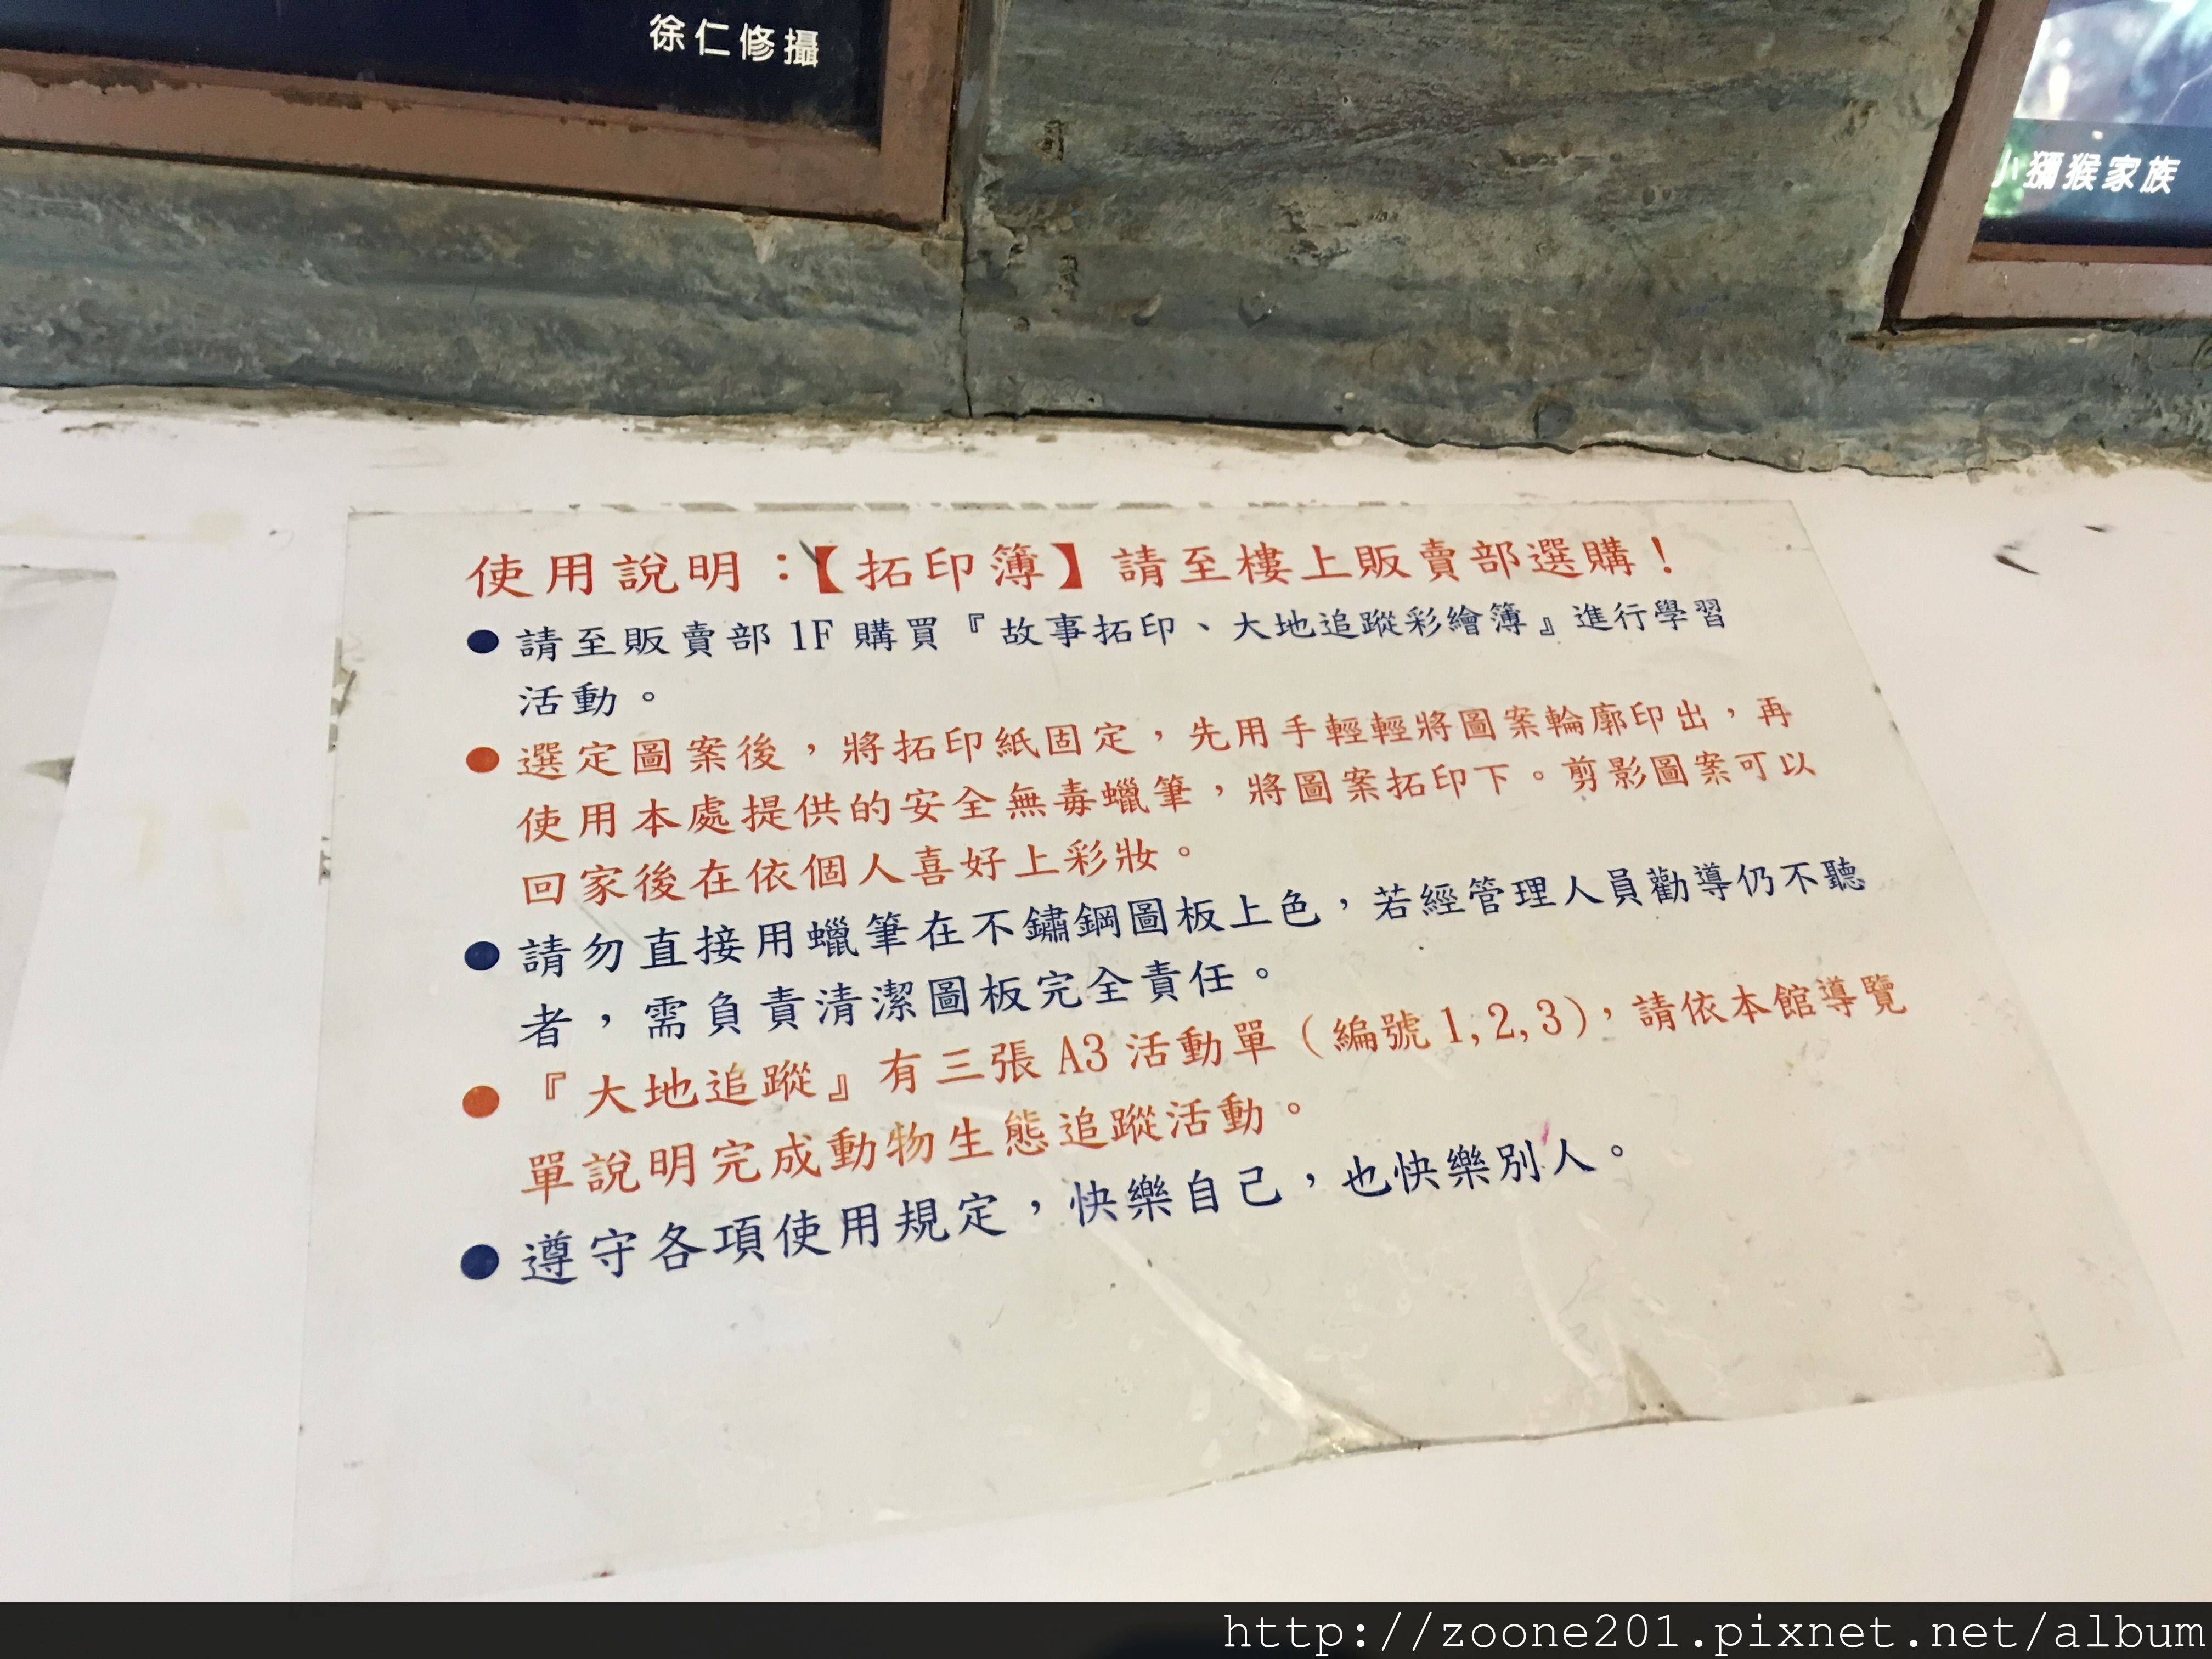 徐仁修攝
小獼猴家族
使用說明：【拓印簿】請至樓上販賣部選購！
●請至販賣部1F購買『故事拓印、大地追蹤彩繪簿』進行學習
活動。
●選定圖案後，將拓印紙固定，先用手輕輕將圖案輪廓印出，再
使用本處提供的安全無毒蠟筆，將圖案拓印下。剪影圖案可以
回家後在依個人喜好上彩妝。
●請勿直接用蠟筆在不鏽鋼圖板上色，若經管理人員勸導仍不聽
者，需負責清潔圖板完全責任。
●『大地追蹤』有三張A3活動單（編號1,2,3)，請依本館導覽
單說明完成動物生態追蹤活動。
●遵守各項使用規定，快樂自己，也快樂別人。
http://zoone201.pixnet.net/album